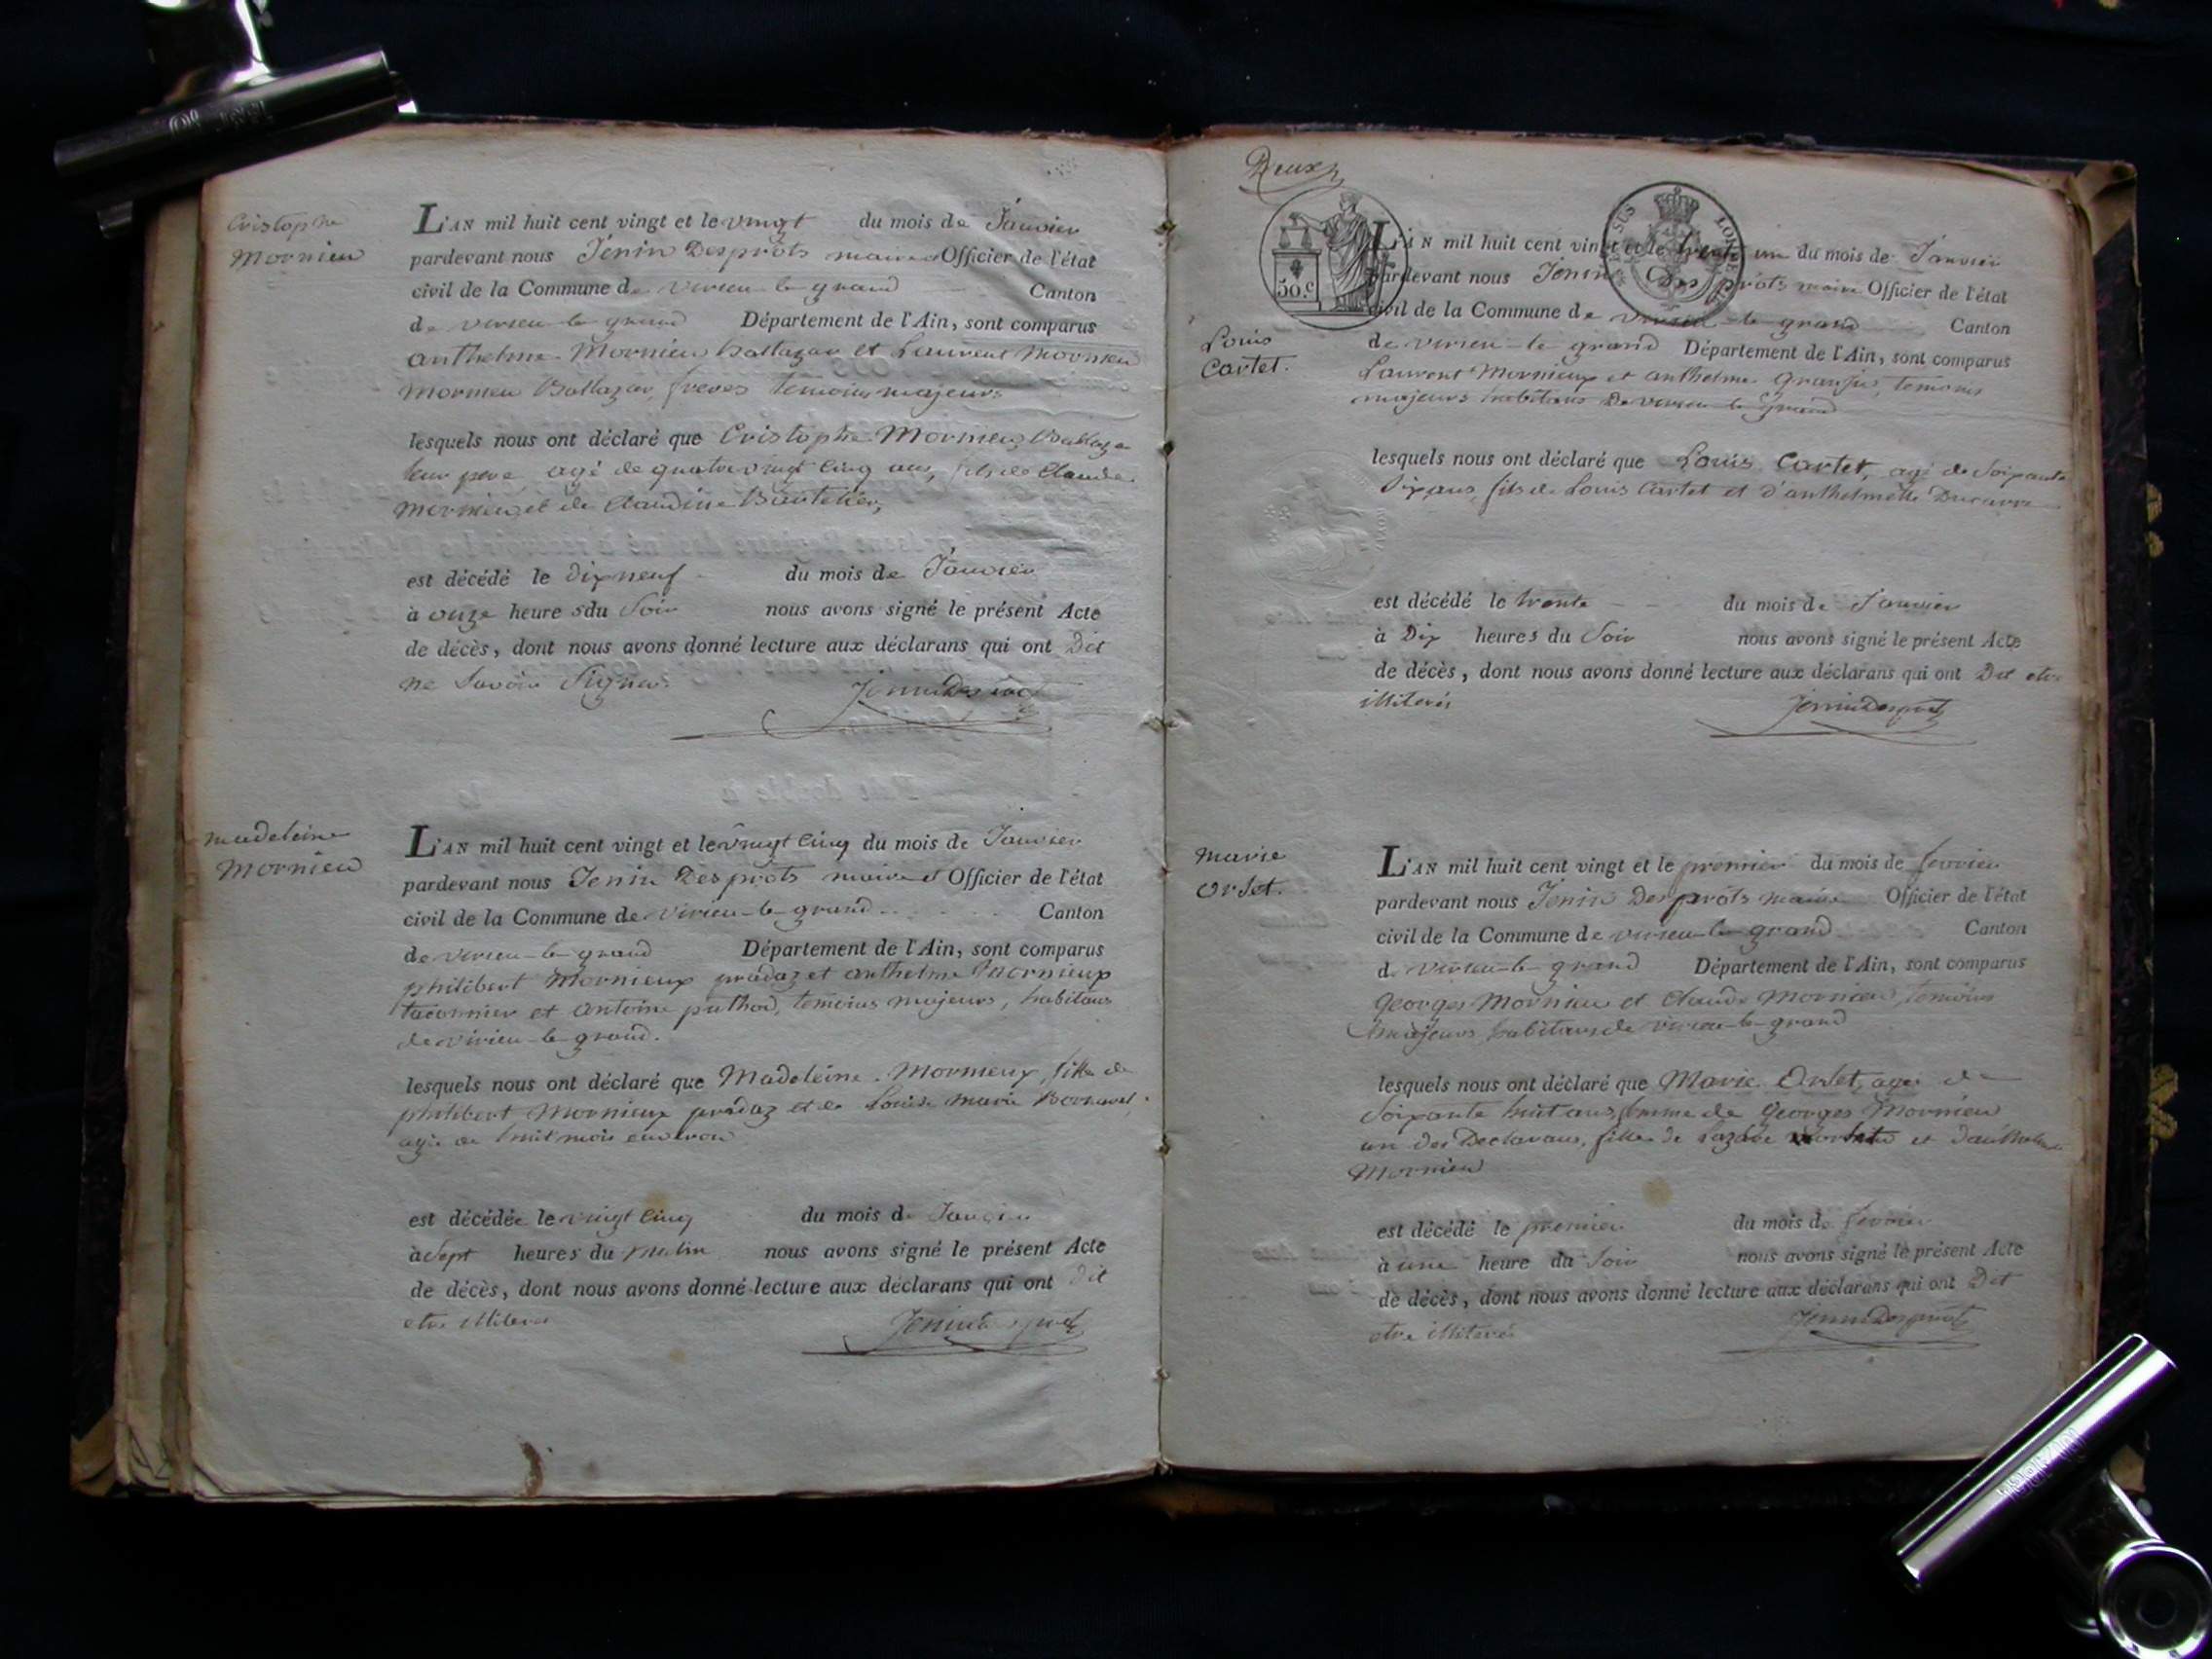 Cristophe
Mornieu
L'AN mil huit cent vingt et le vingt du mois de Janvier
pardevant nous Jenin Desprôts maire et Officier de l'état
civil de la Commune de virieu-le-grand Canton
de virieu-le-grand Département de l'Ain, sont comparus
anthelme Mornieu Baltazar et Laurent Mornieu
Mornieu Baltazar, freres temoins majeurs
lesquels nous ont déclaré que Cristophe Mornieu Baltazar
leur pere, agé de quatre vingt cinq ans, fils de Claude
Mornieu, et de Claudine
est décédé le dix neuf du mois de Janvier
à onze heures du Soir nous avons signé le présent Acte
de décès, dont nous avons donné lecture aux déclarans qui ont Dit
ne Savoir Signer.
Jenin Desprots
madeleine
Mornieu
L'AN mil huit cent vingt et le vingt cinq du mois de Janvier
pardevant nous Jenin Desprôts maire et Officier de l'état
civil de la Commune de virieu-le-grand Canton
de virieu-le-grand Département de l'Ain, sont comparus
philibert Mornieux pradaz et anthelme Mornieux
taconnier et antoine puthod, temoins majeurs, habitans
de virieu-le-grand.
lesquels nous ont déclaré que Madeleine Mornieux, fille de
philibert Mornieux pradaz et de Louise Marie
agée de huit mois environ
est décédée le vingt cinq du mois de Janvier
à Sept heures du matin nous avons signé le présent Acte
de décès, dont nous avons donné lecture aux déclarans qui ont Dit
etre illiterés
Jenin Desprots
Deux
50.c
Louis
Cartet.
L'AN mil huit cent vingt et le trente un du mois de Janvier
pardevant nous Jenin Desprôts maire Officier de l'état
civil de la Commune de virieu-le-grand Canton
de virieu-le-grand Département de l'Ain, sont comparus
Laurent Mornieux et anthelme Granju, temoins
majeurs habitans de virieu le grand
lesquels nous ont déclaré que Louis Cartet, agé de Soixante
Dix ans, fils de Louis Cartet et d'anthelmette Ducarre
est décédé le trente du mois de Janvier
à Dix heures du Soir nous avons signé le présent Acte
de décès, dont nous avons donné lecture aux déclarans qui ont Dit etre
illiterés
Jenin Desprots
Marie
Orset.
L'AN mil huit cent vingt et le premier du mois de fevrier
pardevant nous Jenin Desprôts maire Officier de l'état
civil de la Commune de virieu-le-grand Canton
de virieu-le-grand Département de l'Ain, sont comparus
Georges Mornieu et Claude Mornieu, temoins
majeurs, habitans de virieu-le-grand
lesquels nous ont déclaré que Marie Orset, agée de
Soixante huit ans, femme de Georges Mornieu
un des Declarans, fille de Lazare et d'anthelmette
Mornieu
est décédé le premier du mois de fevrier
à une heure du Soir nous avons signé le présent Acte
de décès, dont nous avons donné lecture aux déclarans qui ont Dit
etre illiterés
Jenin Desprots